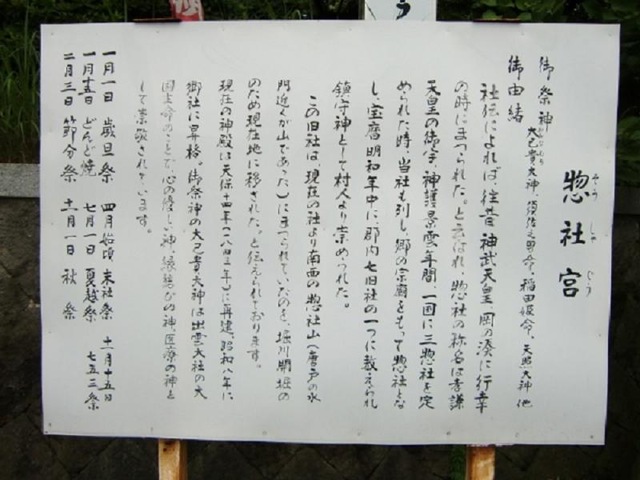 惣社宮
そうしゃぐう
御祭神
大己貴大神、須佐之男命、稲田姫命、天照大神 他
御由緒
社伝によれば、往昔神武天皇岡の湊に行幸
の時にまつられた。と云はれ、惣社の称名は孝謙
天皇の御宇、神護景雲年間、一国に三惣社を定
められた時、当社も列し、郷の宗廟をもって惣社とな
し、宝暦明和年中に、郡内七旧社の一つに数えられ
鎮守神として村人より崇められた。
この旧社は、現在の社より南西の惣社山(唐戸の水
門近くが山であった)にまつられていたのを、堀川開堀の
ため現在地に移された。と伝えられております。
現在の神殿は天保十四年(一八四三年)に再建、昭和八年に
郷社に昇格。御祭神の大己貴大神は出雲大社の大
国主命のことで、心の優しい神、縁結びの神、医療の神と
して崇敬されています。
一月一日 歳旦祭 四月始頃 末社祭 十一月十五日
一月十五日 どんど焼 七月一日 夏越祭 七五三祭
二月三日 節分祭 十一月一日 秋祭